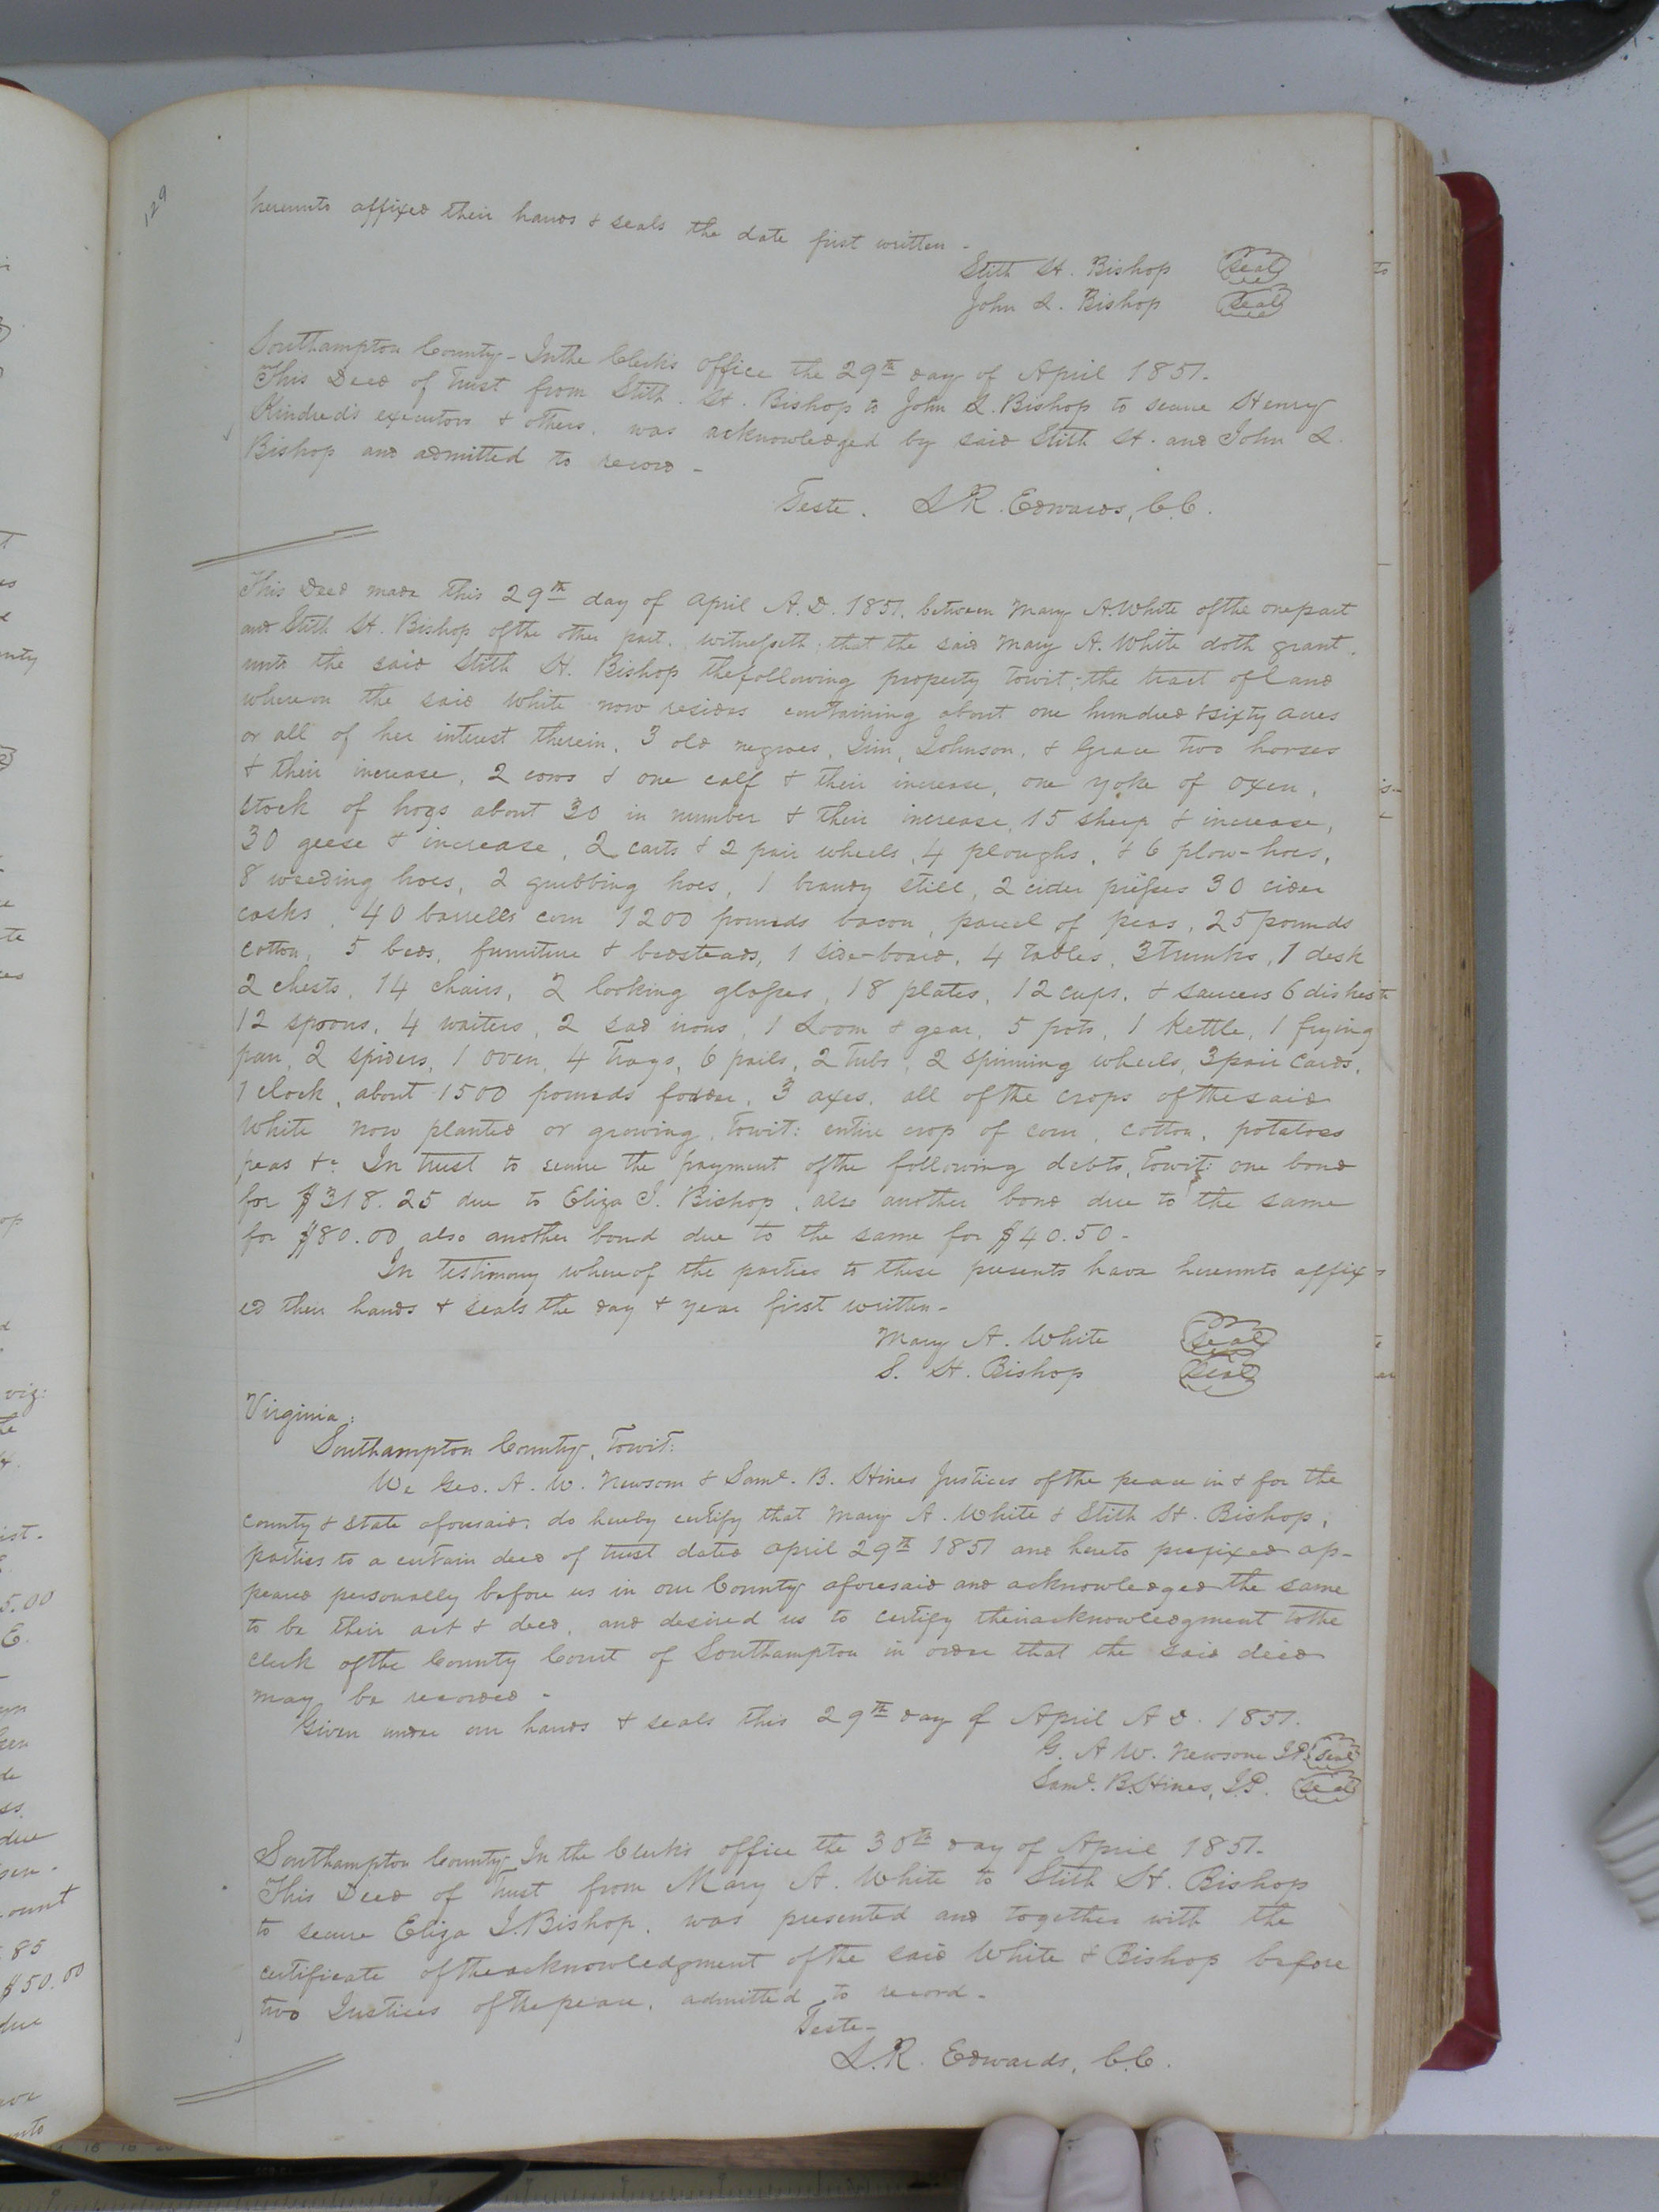 129
hereunto affixed their hands & seals the date first written -
Stith H. Bishop (seal)
John L. Bishop (seal)
Southampton County - In the Clerk's office the 29th day of April 1851.
This Deed of Trust from Stith. H. Bishop to John L. Bishop to secure Henry
Kindred's executors & others, was acknowledged by said Stith H. and John L.
Bishop and admitted to record -
Teste. L R. Edwards, C.C.
This Deed made this 29th day of april A.D. 1851, between Mary A. White of the one part
and Stith H. Bishop of the other part. witnesseth; that the said Mary A. White doth grant
unto the said Stith H. Bishop the following property towit; the tract of land
whereon the said White now resides containing about one hundred & sixty acres
or all of her interest therein, 3 old negroes, Jim, Johnson, & Grace two horses
& their increase, 2 cows & one calf & their increase, one yoke of oxen,
stock of hogs about 30 in number & their increase, 15 sheep & increase,
30 geese & increase, 2 carts & 2 pair wheels, 4 ploughs, & 6 plow-hoes,
8 weeding hoes, 2 grubbing hoes, 1 brandy still, 2 cider presses 30 cider
casks, 40 barrells corn 1200 pounds bacon, parcel of peas, 25 pounds
cotton, 5 beds, furniture & bedsteads, 1 side-board, 4 tables, 3 trunks, 1 desk
2 chests, 14 chairs, 2 looking glasses, 18 plates, 12 cups, & saucers 6 dishes
12 spoons, 4 waiters, 2 sad irons, 1 Loom & gear, 5 pots, 1 Kettle, 1 frying
pan, 2 spiders, 1 oven, 4 trays, 6 pails, 2 tubs, 2 spinning wheels, 3 pair cards,
1 clock, about 1500 pounds fodder, 3 axes, all of the crops of the said
White now planted or growing, towit: entire crop of corn, cotton, potatoes
peas &c. In trust to secure the payment of the following debts, towit: one bond
for $318.25 due to Eliza J. Bishop, also another bond due to the same
for $80.00 also another bond due to the same for $40.50 -
In testimony whereof the parties to these presents have hereunto affix
ed their hands & seals the day & year first written -
Mary A. White (seal)
S. H. Bishop (seal)
Virginia:
Southampton County, towit:
We Geo. A. W. Newsom & Saml. B. Hines Justices of the peace in & for the
County & state aforesaid, do hereby certify that Mary A. White & Stith H. Bishop,
parties to a certain deed of trust dated april 29th 1851 and hereto prefixed ap-
peared personally before us in our County aforesaid and acknowledged the same
to be their act & deed, and desired us to certify their acknowledgment to the
clerk of the County Court of Southampton in order that the said deed
may be recorded -
Given under our hands & seals this 29th day of April A D. 1851.
G. A W. Newsom J.P. (seal)
Saml. B. Hines, J.P. (seal)
Southampton County - In the Clerk's office the 30th day of April 1851.
This Deed of Trust from Mary A. White to Stith H. Bishop
to secure Eliza J. Bishop, was presented and together with the
certificate of the acknowledgment of the said White & Bishop before
two Justices of the peace, admitted to record -
Teste -
L.R. Edwards, C.C.